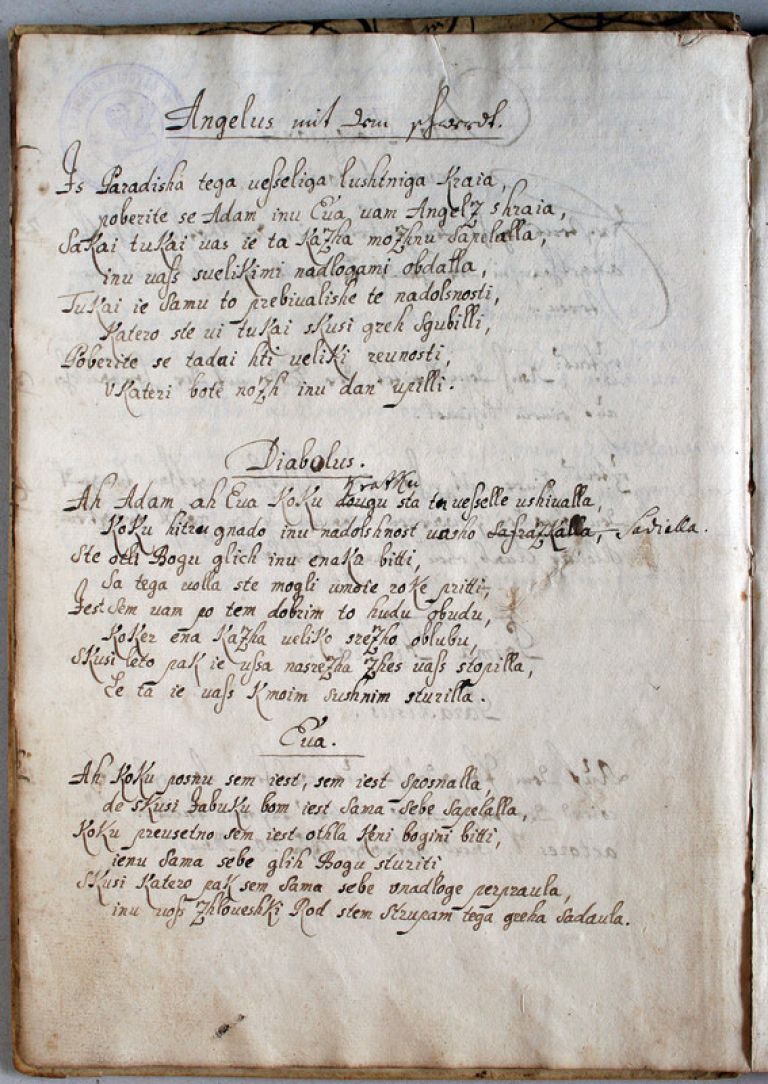 Angelus mit dem schwerdt.
Is Paradisha tega uesseliga lushtniga Kraia,
poberite se Adam inu Eua, uam Angelz shraia,
Sakai tukai uas ie ta Kazha mozhnu Sapelalla,
inu uass suelikimi nadlogami obdalla,
Tukai ie Samu to prebiualishe te nadolsnosti,
Katero ste ui tukai skusi greh Sgubilli,
Poberite se tadai hti ueliki reunosti,
VKateri bote nozh inu dan upilli.
Diabolus.
Kratku
Ah Adam ah Eua Koku dougu sta te uesselle ushiualla,
Koku hitru gnado inu nadolshnost uasho Safrazkalla, Sadiella.
Ste otli Bogu glich inu enaka bitti,
Sa tega uolla ste mogli umoie roke pritti,
Jest Sem uam po tem dobrim to hudu obudu,
Koker ena Kazha ueliko srezho oblubu,
Skusi leto pak ie ussa nasrezha zhes uass stopilla,
Ze ta ie uass Kmoim sushnim sturilla.
Eua.
Ah Koku posnu sem iest, sem iest sposnalla,
de skusi Jabuku bom iest Sama Sebe Sapelalla,
Koku preusetno sem iest othla Keni bogini bitti,
ienu Sama sebe glih Bogu sturiti
Skusi Katero pak sem Sama sebe unadloge perpraula,
inu uoss Zhloueshki Rod stem Strupam tega greha Sadaula.